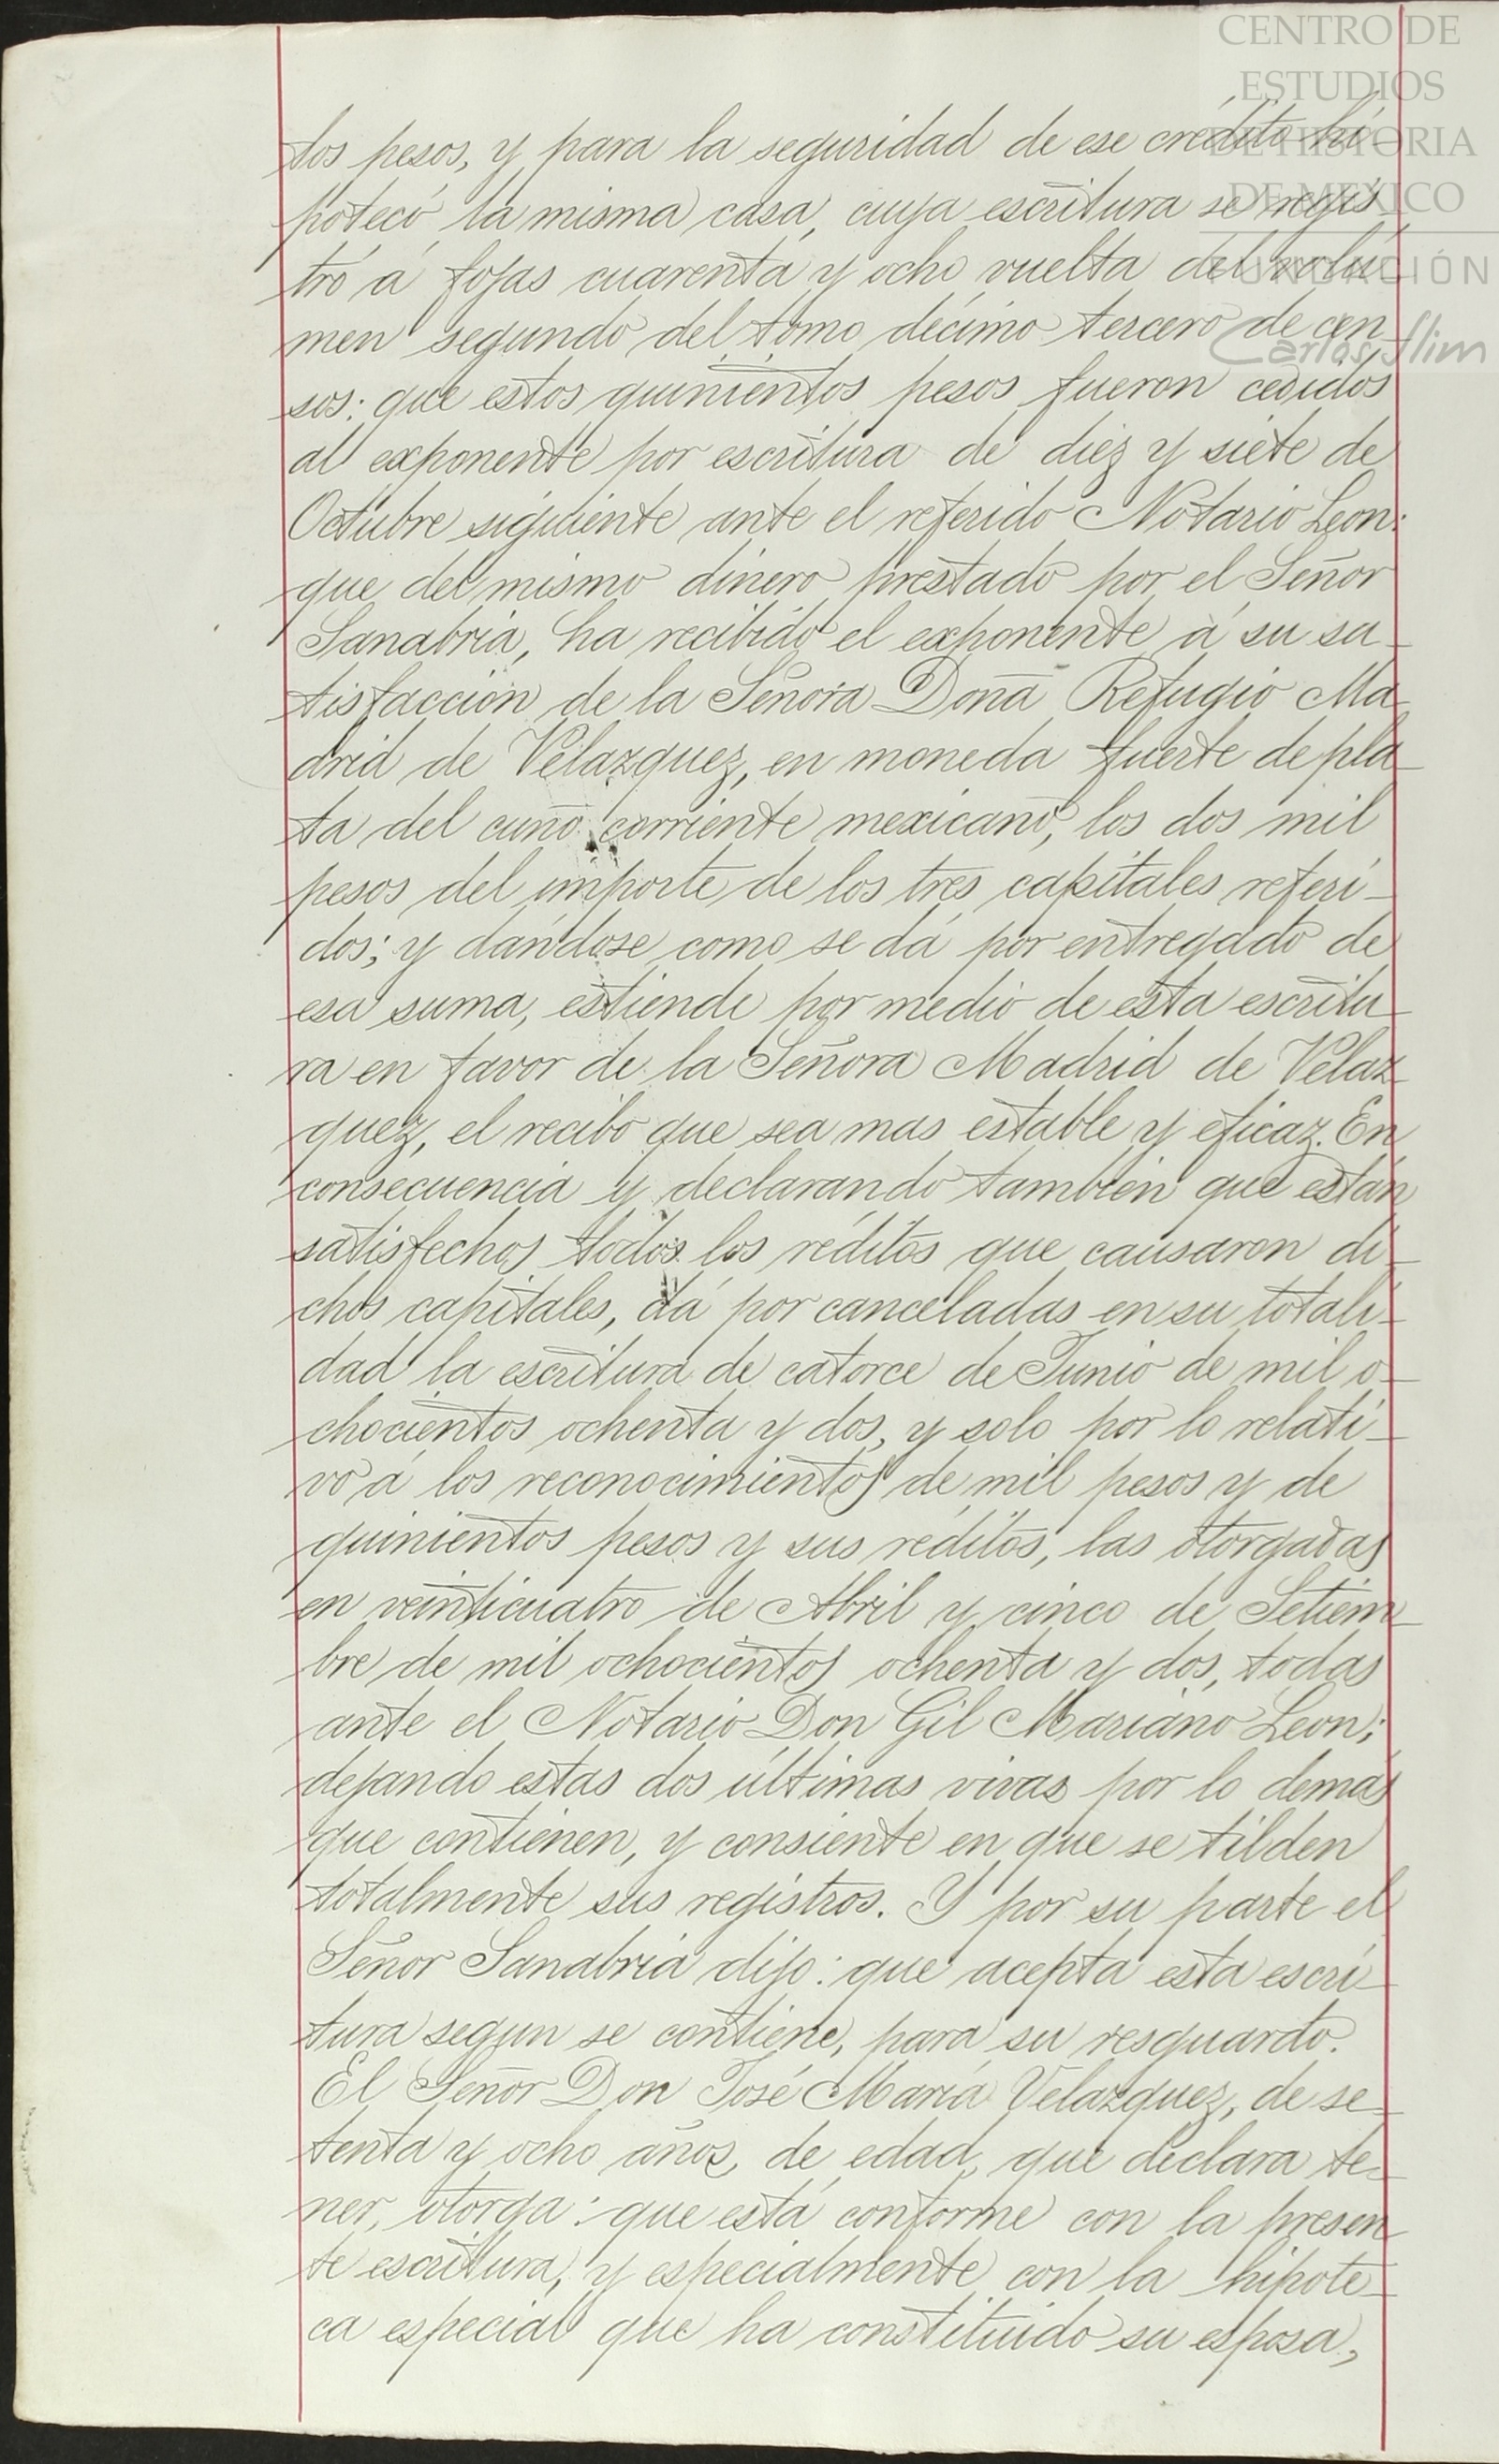 CENTRO DE
ESTUDIOS
DE HISTORIA
DE MEXICO
FUNDACIÓN
Carlos Slim
tos pesos, y para la seguridad de ese crédito hi-
potecó la misma casa, cuya escritura se regis
tró á fojas cuarenta y ocho vuelta del volu
men segundo del tomo décimo tercero de cen
sos: que estos quinientos pesos fueron cedidos
al exponente por escritura de diez y siete de
Octubre siguiente ante el referido Notario Leon:
que del mismo dinero prestado por el Señor
Sanabria, ha recibido el exponente á su sa-
tisfaccion de la Señora Doña Refugio Ma
drid de Velazquez, en moneda fuerte de pla
ta del cuño corriente mexicano, los dos mil
pesos del importe de los tres capitales referi-
dos; y dandose como se dá por entregado de
esa suma, estiende por medio de esta escritu
ra en favor de la Señora Madrid de Velaz
quez, el recibo que sea mas estable y eficaz. En
consecuencia y declarando tambien que están
satisfechos todos los réditos que causaron di-
chos capitales, dá por canceladas en su totali-
dad la escritura de catorce de Junio de mil o-
chocientos ochenta y dos, y solo por lo relati-
vo á los reconocimientos de mil pesos y de
quinientos pesos y sus réditos, las otorgadas
en veinticuatro de Abril y cinco de Setiem-
bre de mil ochocientos ochenta y dos, todas
ante el Notario Don Gil Mariano Leon;
dejando estas dos últimas vivas por lo demas
que contienen, y consiente en que se tilden
totalmente sus registros. Y por su parte el
Señor Sanabria dijo: que acepta esta escri-
tura segun se contiene, para su resguardo.
El Señor Don José María Velazquez, de se-
tenta y ocho años de edad, que declara te-
ner, otorga: que está conforme con la presen
te escritura, y especialmente con la hipote-
ca especial que ha constituido su esposa,